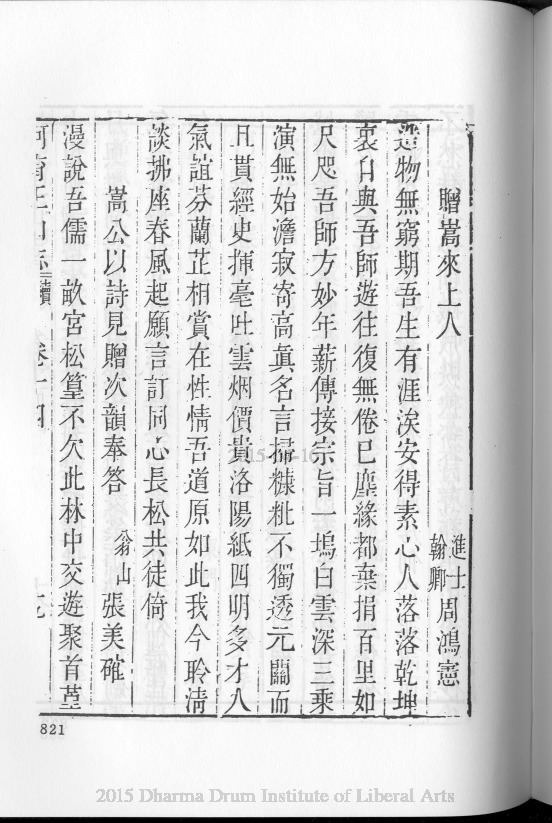 贈嵩來上人
進士周鴻憲
翰卿
造物無窮期吾生有涯涘安得素心人落落乾坤
裏自與吾師遊往復無倦已塵緣都棄捐百里如
咫尺吾師方妙年薪傳接宗旨一塢白雲深三乘
演無始澹寂寄高眞名言掃糠粃不獨透元關而
且貫經史揮毫吐雲烟價貴洛陽紙四明多才人
氣誼芬蘭芷相賞在性情吾道原如此我今聆清
談拂座春風起願言訂同心長松共徒倚
嵩公以詩見贈次韻奉答
翁山張美確
漫說吾儒一畝宮松篁不欠此林中交遊聚首堇
阿育王山志續 卷十四
821
2015 Dharma Drum Institute of Liberal Arts